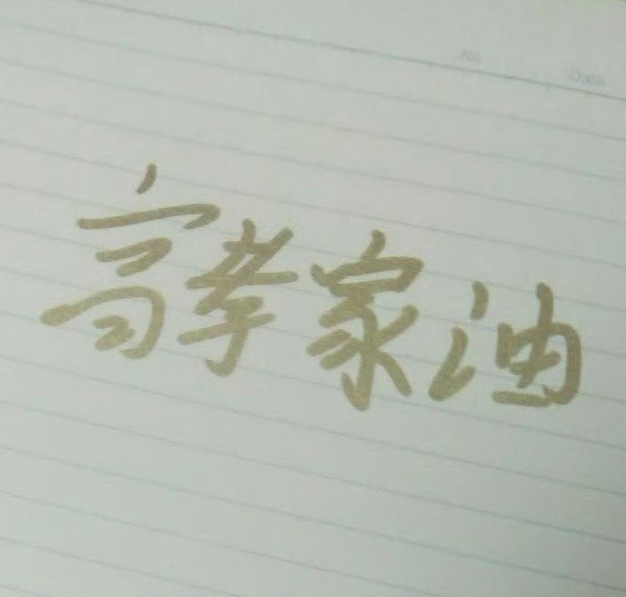 No Date
高孝家油